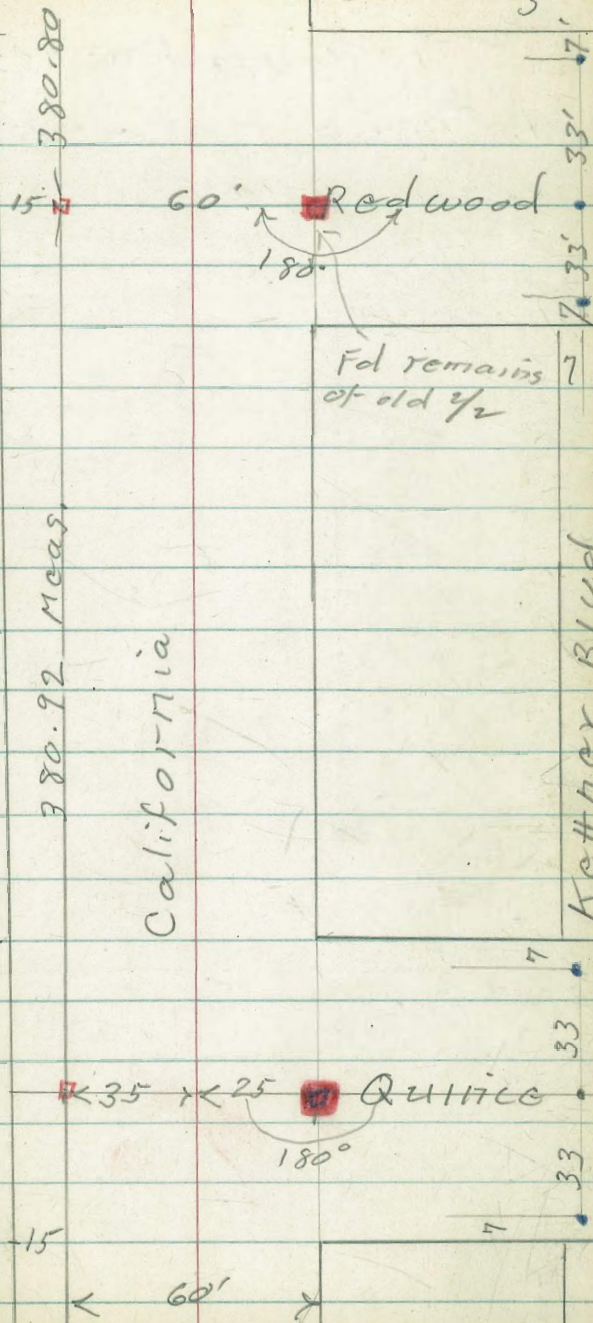 380.80
7'
33'
15
60'
Redwood
180°
33'
7
Fd remains
of old 2/2
7
380.92 Meas.
California
Kettner Blvd
7
33
<35 ><25
Quince
180°
33
7
15
60'